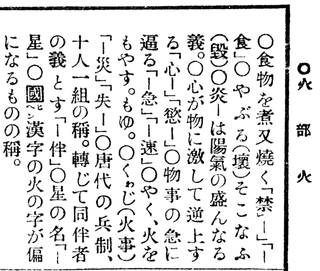 〇火 部 火
〇食物を煮又燒く「禁—」「—
食」〇やぶる(壞)そこなふ
(毀)〇炎—は陽氣の盛んなる
義。〇心が物に激して逆上す
る「心—」「慾—」〇物事の急に
逼る「—急」「—速」〇やく、火を
もやす。もゆ。〇くわじ(火事)
「—災」「失—」〇唐代の兵制、
十人一組の稱。轉じて同伴者
の義とす「—伴」〇星の名「—
星」〇國ヒヘン漢字の火の字が偏
になるものの稱。